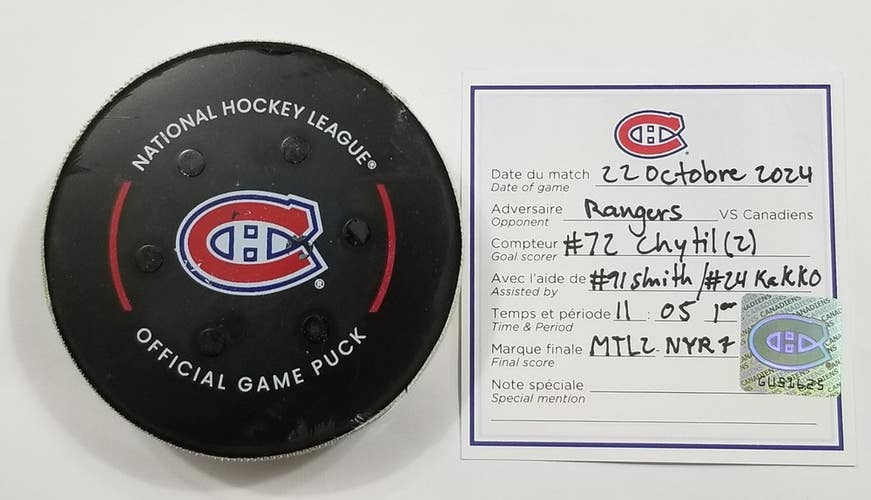 NATIONAL HOCKEY LEAGUE®
®
OFFICIAL GAME PUCK
Date du match 22 Octobre 2024
Date of game
Adversaire Rangers VS Canadiens
Opponent
Compteur #72 Chytil (2)
Goal scorer
Avec l'aide de #91 Smith / #24 Kakko
Assisted by
Temps et période 11 : 05 1er
Time & Period
Marque finale MTL2 - NYR7
Final score
Note spéciale
Special mention
CANADIENS
GU91625